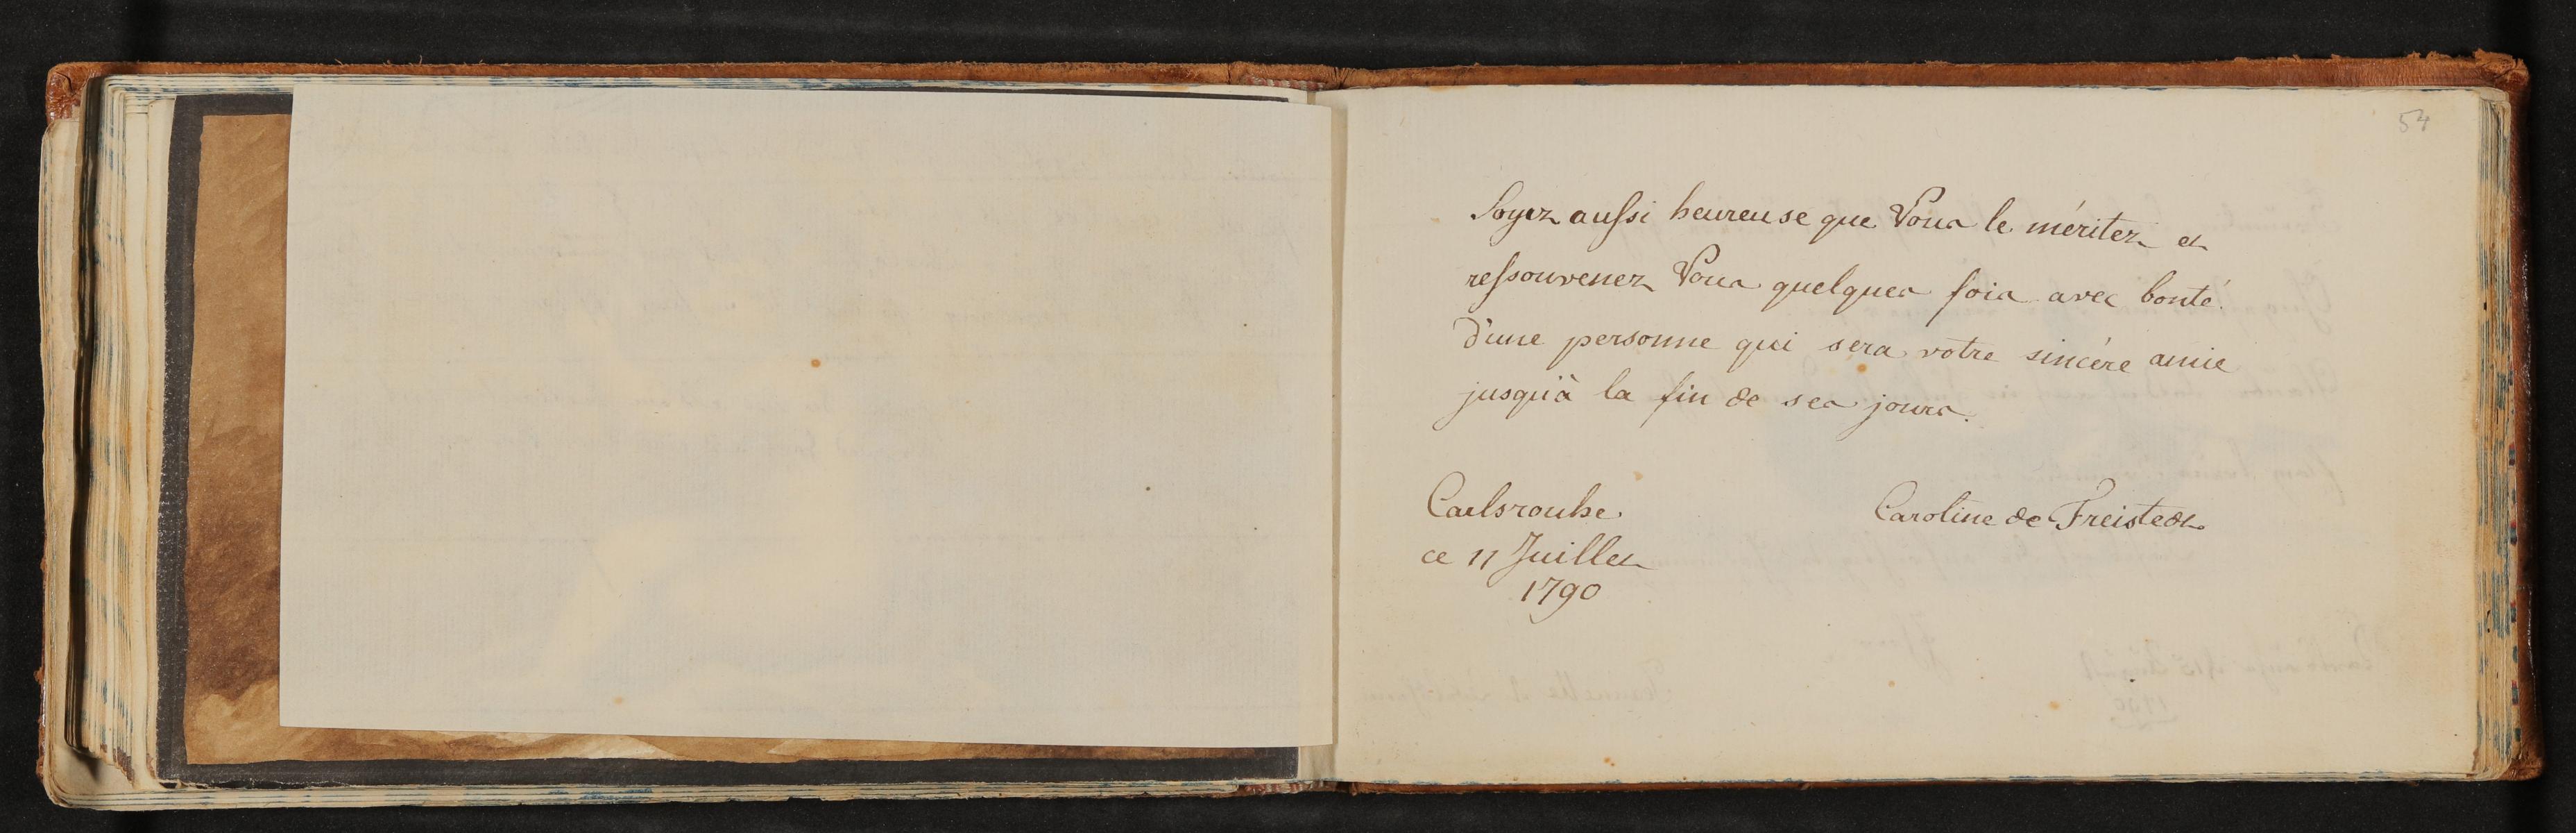 54
Soyez aussi heureuse que Vous le méritez et
ressouvenez Vous quelques fois avec bonté.
d'une personne qui sera votre sincére amie
jusqu'à la fin de ses jours.
Carlsrouhe
Caroline de Freistedt
ce 11 Juillet
1790